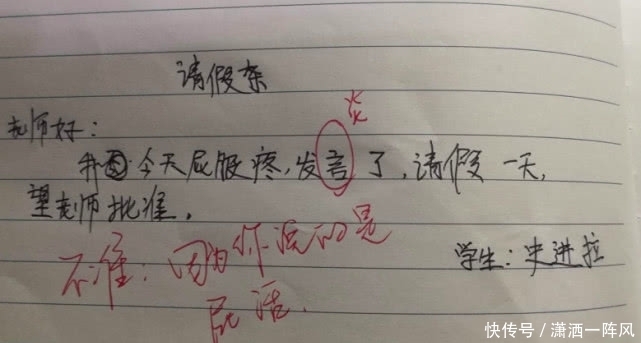 请假条
炎
老师好：
我因今天屁股疼，发言了，请假一天，
望老师批准。
不准：因为你说的是
屁话．
学生：史进拉
快传号／潇洒一阵风